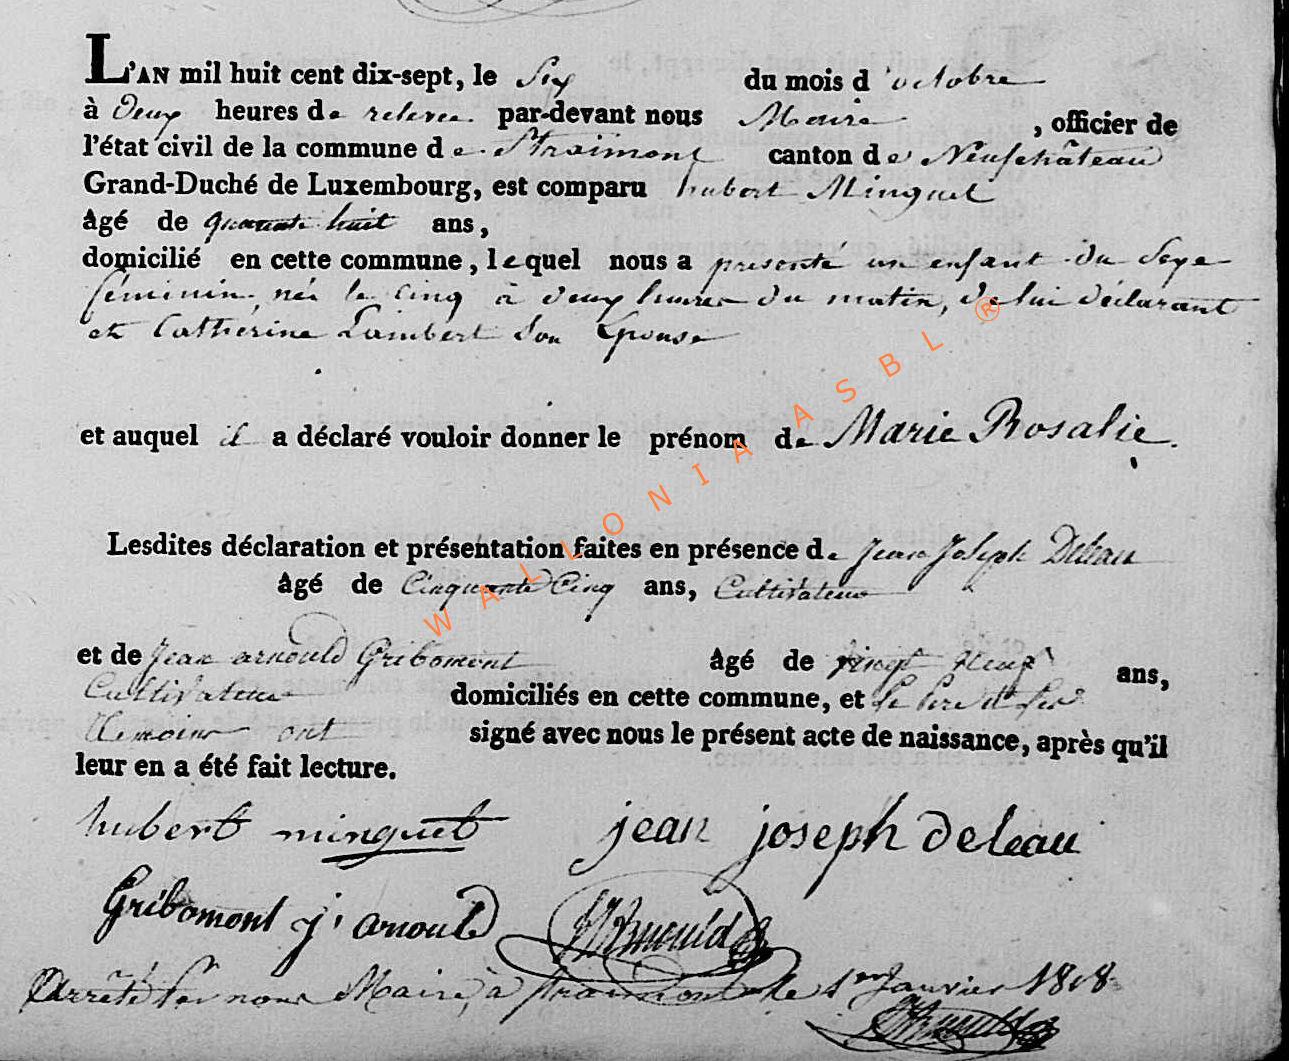 L'AN mil huit cent dix-sept, le Six du mois d'octobre
à deux heures de relevée par-devant nous Maire, officier de
l'état civil de la commune de Straimont canton de Neufchâteau
Grand-Duché de Luxembourg, est comparu hubert Minguet
âgé de quarante huit ans,
domicilié en cette commune, lequel nous a présenté un enfant du Sexe
féminin née le cinq à deux heures du matin, de lui déclarant
et Catherine Lambert Son Epouse
et auquel il a déclaré vouloir donner le prénom de Marie Rosalie.
Lesdites déclaration et présentation faites en présence de Jean Joseph Deleau
âgé de Cinquante Cinq ans, Cultivateur
et de Jean arnould Gribomont âgé de vingt neuf ans,
Cultivateur domiciliés en cette commune, et le pere et les
témoins ont signé avec nous le présent acte de naissance, après qu'il
leur en a été fait lecture.
hubert minguet jean joseph deleau
Gribomont j. arnould Arnould
Arrêté par nous Maire, à Straimont le 1er Janvier 1818
Arnould
WALLONIA ASBL ®